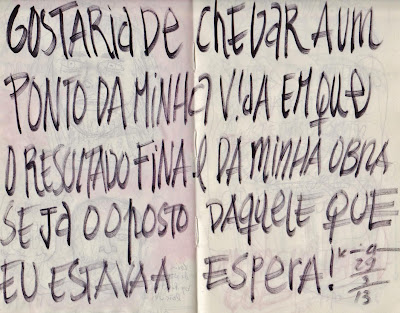 GOSTARIA DE CHEGAR A UM
PONTO DA MINHA VIDA EM QUE
O RESULTADO FINAL DA MINHA OBRA
SEJA O OPOSTO DAQUELE QUE
EU ESTAVA A ESPERA!
29
3
13